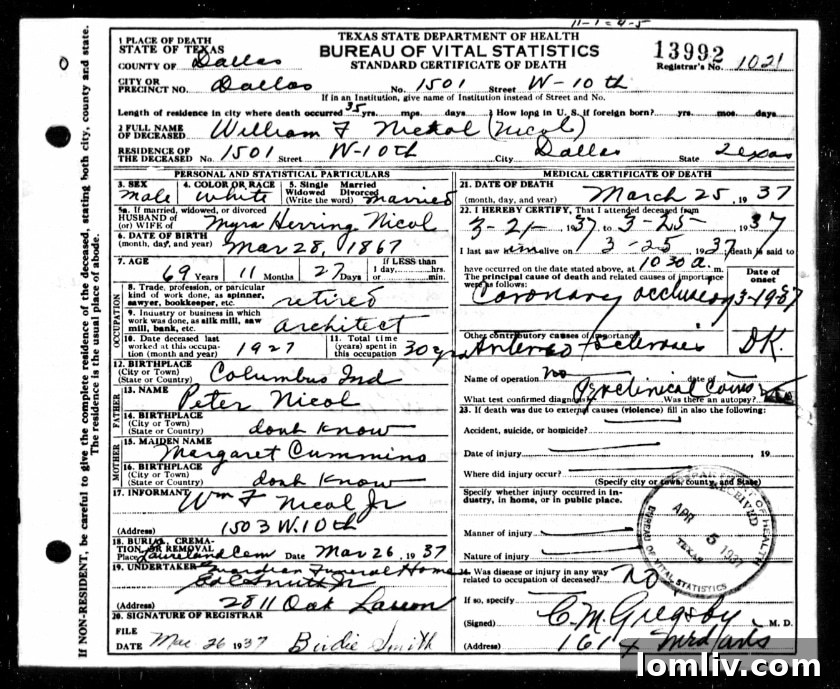 11-1-4-5
TEXAS STATE DEPARTMENT OF HEALTH
BUREAU OF VITAL STATISTICS
STANDARD CERTIFICATE OF DEATH
13992
Registrar's No. 1021
1 PLACE OF DEATH
STATE OF TEXAS
COUNTY OF Dallas
CITY OR PRECINCT NO. Dallas No. 1501 Street W-10th
If in an Institution, give name of Institution instead of Street and No.
Length of residence in city where death occurred 35 yrs. mos. days How long in U. S. if foreign born? yrs. mos. days
2 FULL NAME OF DECEASED William F Nickol (Nicol)
RESIDENCE OF THE DECEASED No. 1501 Street W-10th City Dallas State Texas
PERSONAL AND STATISTICAL PARTICULARS
3. SEX male 4. COLOR OR RACE white 5. Single Married Widowed Divorced (Write the word) married
5a. If married, widowed, or divorced HUSBAND OF (or) WIFE OF Myra Herring Nicol
6. DATE OF BIRTH (month, day, and year) Mar 28, 1867
7. AGE 69 Years 11 Months 27 Days If LESS than 1 day, hrs. or min.
OCCUPATION
8. Trade, profession, or particular kind of work done, as spinner, sawyer, bookkeeper, etc. retired
9. Industry or business in which work was done, as silk mill, saw mill, bank, etc. architect
10. Date deceased last worked at this occupation (month and year) 1927 11. Total time (years) spent in this occupation 30 yrs
12. BIRTHPLACE (City or Town) (State or Country) Columbus Ind
FATHER
13. NAME Peter Nicol
14. BIRTHPLACE (City or Town) (State or Country) dont know
MOTHER
15. MAIDEN NAME Margaret Cummins
16. BIRTHPLACE (City or Town) (State or Country) dont know
17. INFORMANT Wm F Nicol Jr
(Address) 1503 W. 10th
18. BURIAL, CREMATION, OR REMOVAL
Place Laureland Cem Date Mar 26, 1937
19. UNDERTAKER Guardian Funeral Home
Smith Jr
(Address) 2811 Oak Lawn
20. SIGNATURE OF REGISTRAR
FILE DATE Mar 26 1937 Birdie Smith
MEDICAL CERTIFICATE OF DEATH
21. DATE OF DEATH (month, day, and year) March 25, 1937
22. I HEREBY CERTIFY, That I attended deceased from
3-21- 1937 to 3-25- 1937
I last saw him alive on 3-25 1937, death is said to
have occurred on the date stated above, at 1030 a. m.
The principal cause of death and related causes of importance were as follows: Date of onset
Coronary occlusion 3-19-37
Other contributory causes of importance
DK
Name of operation no date of
What test confirmed diagnosis? Was there an autopsy?
23. If death was due to external causes (violence) fill in also the following:
Accident, suicide, or homicide?
Date of injury 19
Where did injury occur?
(Specify city or town, county, and State)
Specify whether injury occurred in Industry, in home, or in public place.
Manner of injury
Nature of injury
24. Was disease or injury in any way related to occupation of deceased? NO
If so, specify
(Signed) C. M. Grigsby M. D.
(Address)
RECEIVED
APR 5 1937
TEXAS
DEPARTMENT OF HEALTH
BUREAU OF VITAL STATISTICS
If NON-RESIDENT, be careful to give the complete residence of the deceased, stating both city, county and state.
The residence is the usual place of abode.
lomliv.com